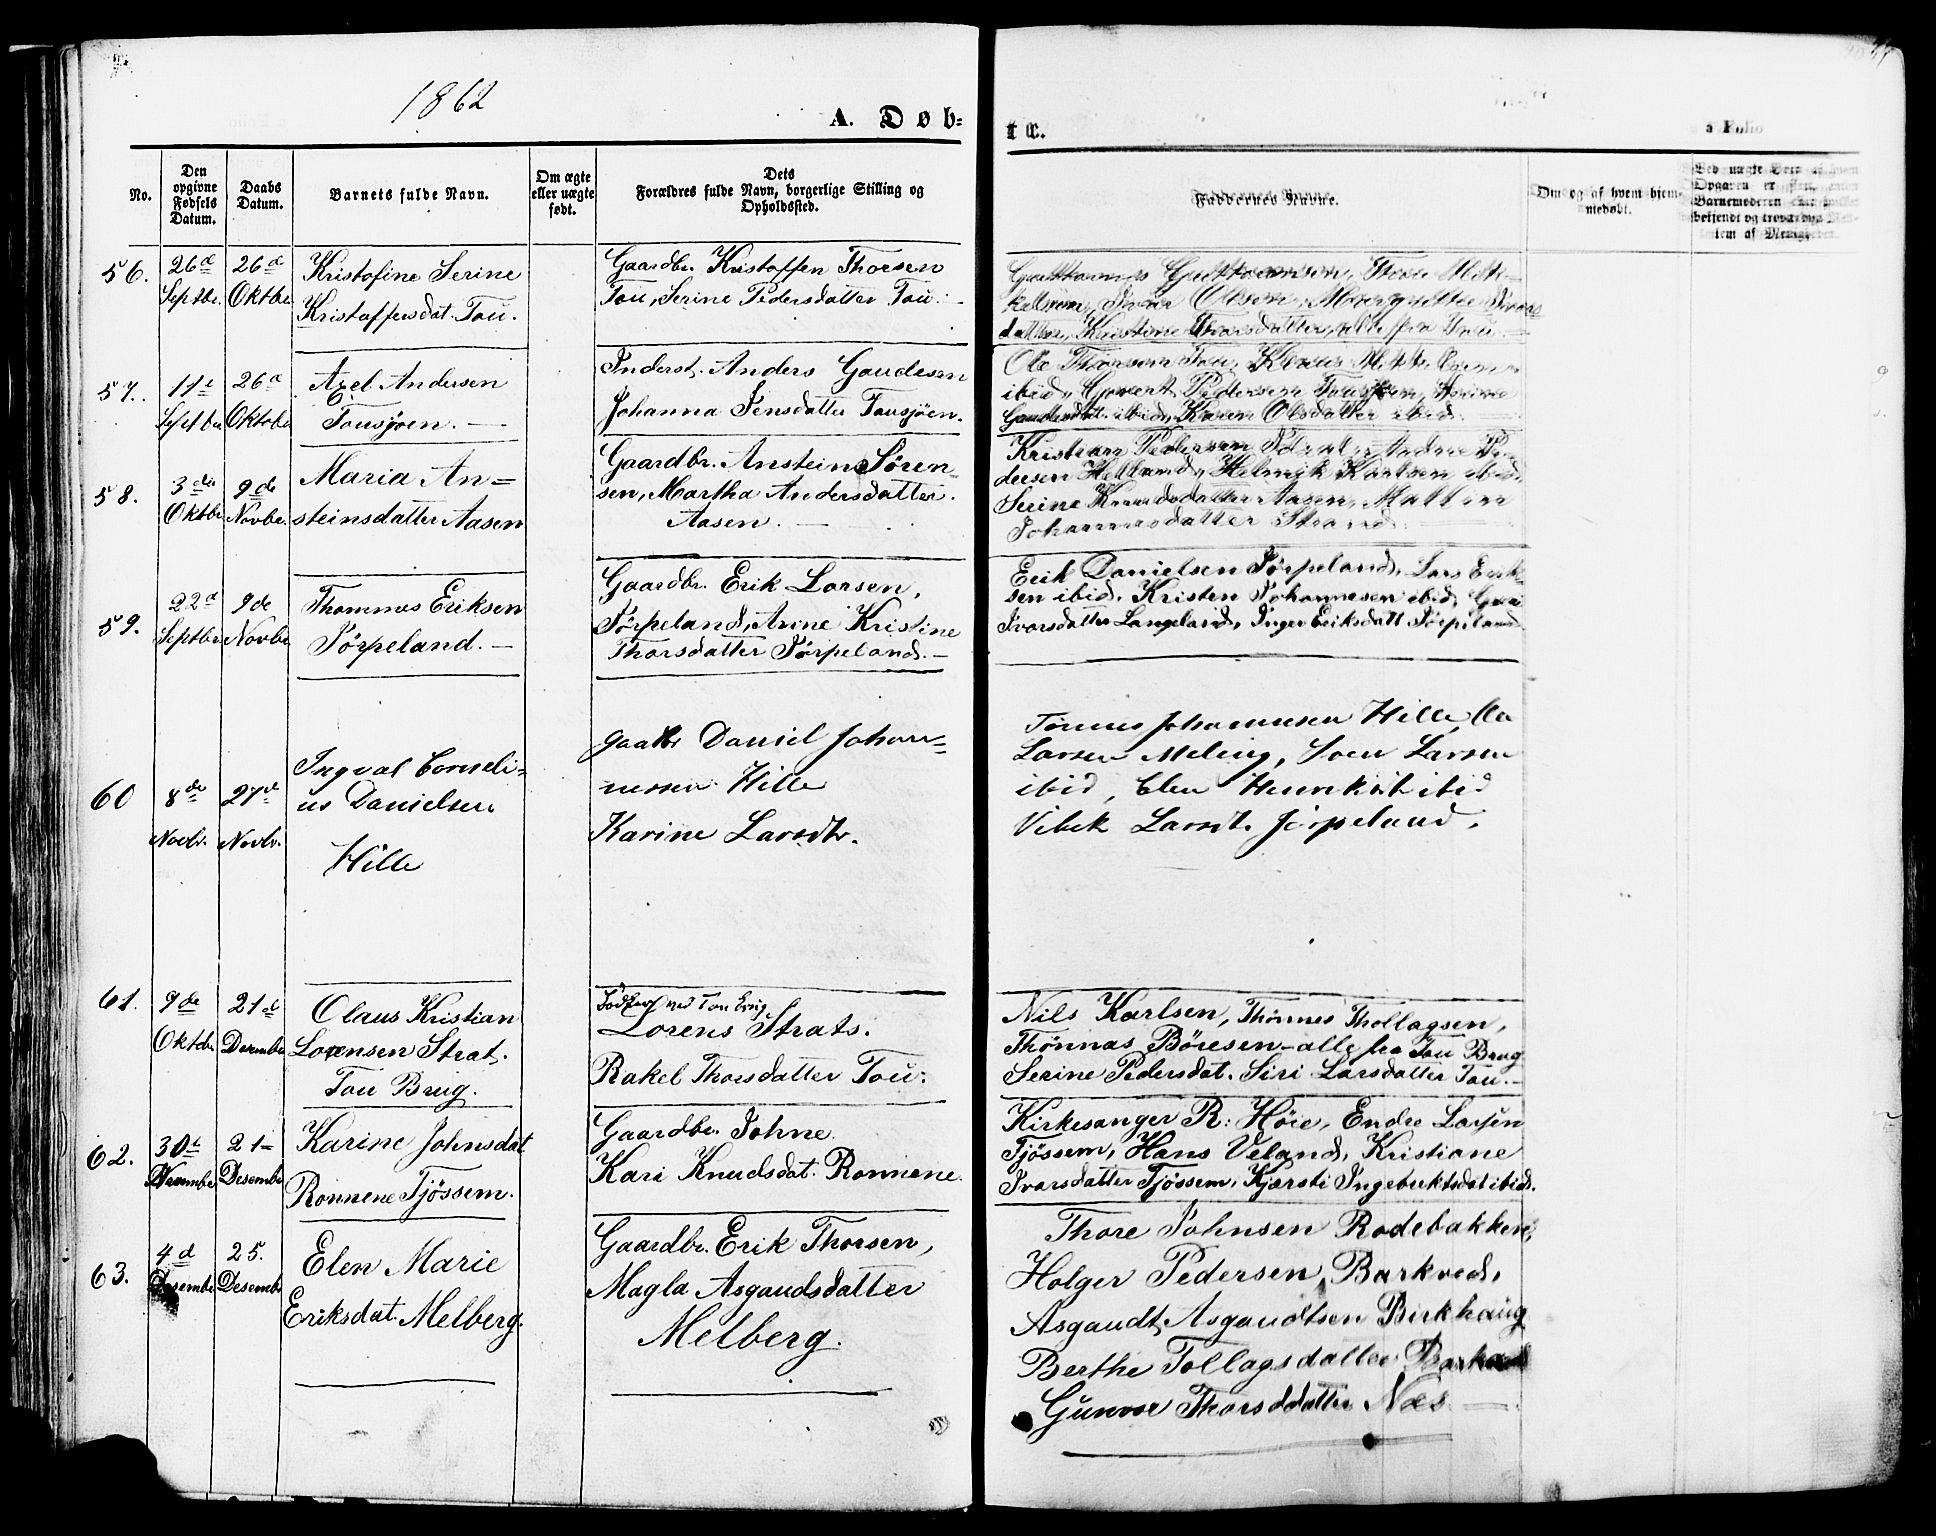 1862
A. Døb=
te.
a Folio
No.
Den opgivne Fødsels Datum.
Daabs Datum.
Barnets fulde Navn.
Om ægte eller uægte født.
Dets Forældres fulde Navn, borgerlige Stilling og Opholdssted.
Faddernes Navne.
Om og af hvem hjem-
medøbt.
56.
26d Septbr.
26d Oktobr.
Kristofine Serine
Kristoffersdat. Tou.
Gaardbr. Kristoffen Thorsen
Tou, Serine Pedersdatter Tou.
Ivar Olsen, Margrethe Ivars
datter, Kristine Thorsdatter, alle fra Tou.
57.
11te Septbr.
26d Oktobr.
Axel Andersen
Tousjøen.
Inderst. Anders Gaudesen
Johanna Jensdatter Tousjøen.
Ole Thorsen Tou, Klaus
ibid, Govert Pedersen Tousjøen,
Gaudesdat. ibid, Karen Olsdatter ibid.
58.
3die Oktbr.
9de Novbr.
Maria An=
steinsdatter Aasen
Gaardbr. Anstein Søren=
sen, Martha Andersdatter.
Aasen.
Kristian Pedersen Andre Pe-
dersen Helland, Helmik Karlsen ibid.
Serine Knudsdatter Aasen,
Johannesdatter Strand
59.
22d Septbr.
9de Novbr.
Thommas Eriksen
Jørpeland.
Gaardbr. Erik Larsen,
Jørpeland, Anne Kristine
Thorsdatter Jørpeland.
Erik Danielsen Jørpeland, Lars Erik-
sen ibid. Kristen Johannesen ibid, Guri
Ivarsdatter Langeland, Inger Eriksdatt Jørpeland
60
8de Novbr.
27de Novbr.
Ingval Corneli=
us Danielsen
Hille
gaatbr Daniel Johan=
nessen Hille
Karine Larsdtr.
Tønnes Johannesen Hille, Ole
Larsen Meling, Soen Larsen
ibid, Elen ibid
Vibek Larsdt. Jørpeland.
61.
9de Oktobr
21de Desembr
Olaus Kristian
Lorensen Strat.
Tou Brug.
Bødker ved Tou Brug
Lorens Strats.
Rakel Thorsdatter Tou:
Nils Karlsen, Thønnes Thollagsen,
Thønnas Børesen - alle fra Tou Brug
Serine Pedersdat. Siri Larsdatter Tou.
62.
30te Novembr
21 Desembr
Karine Johnsdat
Ronnene Tjøssem.
Gaardbr. Johne
Kari Knudsdat. Ronnene.
Kirkesanger R: Høie, Endre Larsen
Tjøssem, Hans Veland, Kristiane
Ivarsdatter Tjøssem, Kjersti Ingebriktsdat ibid.
63.
4d Desembr
25. Desembr
Elen Marie
Eriksdat. Melberg.
Gaardbr. Erik Thorsen,
Magla Asgaudsdatter
Melberg.
Thore Johnsen Rodebakken,
Holger Pedersen, Barkved,
Asgaudt, Asgaudtsen Birkhaug
Berthe Tollagsdatter
Gunvor Thorsdatter Næs